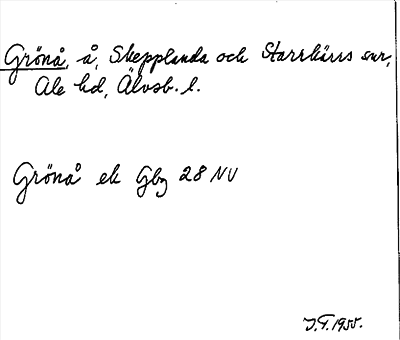 Grönå, å, Skepplanda och Starrkärrs snr,
Ale hd, Älvsb. l.
Grönå ek Gbg 28 NV
J.F. 1955.